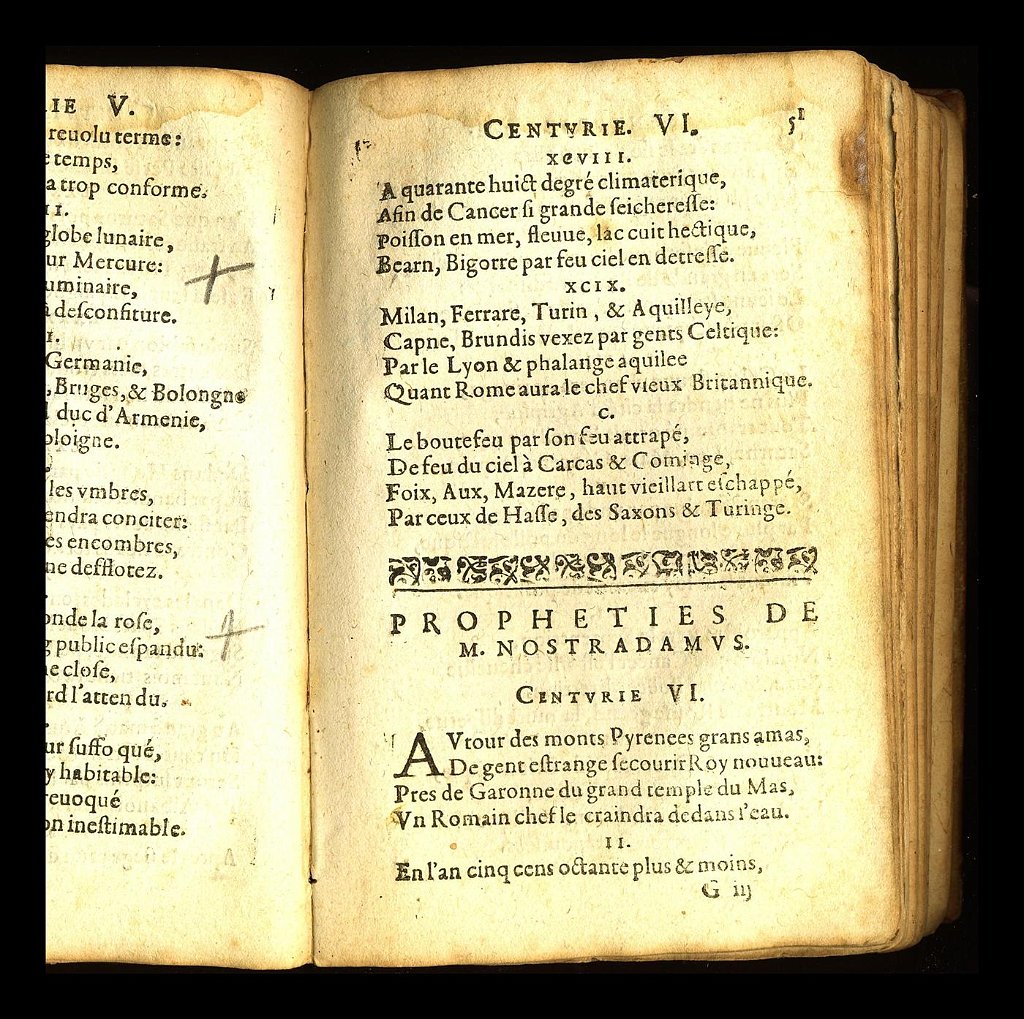 IE V.
reuolu terme:
temps,
a trop conforme.
II.
globe lunaire,
ur Mercure:
uminaire,
à desconfiture.
I.
Germanie,
, Bruges, & Bolongne
duc d'Armenie,
oloigne.
les vmbres,
endra conciter:
es encombres,
ne defflorez.
onde la rose,
g public espandu:
e close,
rd l'attendu.
ur suffoqué,
y habitable:
reuoqué
on inestimable.
CENTVRIE. VI. 51
xcVIII.
A quarante huict degré climaterique,
Afin de Cancer ſi grande ſeichereſſe:
Poiſſon en mer, fleuue, lac cuit hectique,
Bearn, Bigorre par feu ciel en detreſſe.
XCIX.
Milan, Ferrare, Turin, & Aquilleye,
Capne, Brundis vexez par gents Celtique:
Par le Lyon & phalange aquilee
Quant Rome aura le chef vieux Britannique.
C.
Le boutefeu par ſon feu attrapé,
De feu du ciel à Carcas & Cominge,
Foix, Aux, Mazere, haut vieillart eſchappé,
Par ceux de Haſſe, des Saxons & Turinge.
PROPHETIES DE
M. NOSTRADAMVS.
CENTVRIE VI.
AVtour des monts Pyrenees grans amas,
De gent eſtrange ſecourir Roy nouueau:
Pres de Garonne du grand temple du Mas,
Vn Romain chef le craindra dedans l'eau.
II.
En l'an cinq cens octante plus & moins,
G iij